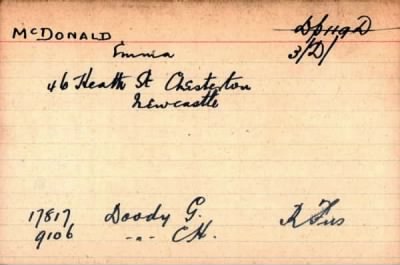 McDONALD
Emma
3/D/
46 Heath St Chesterton
Newcastle
17817 Doody G. R Fus
9106 -"- C.H.